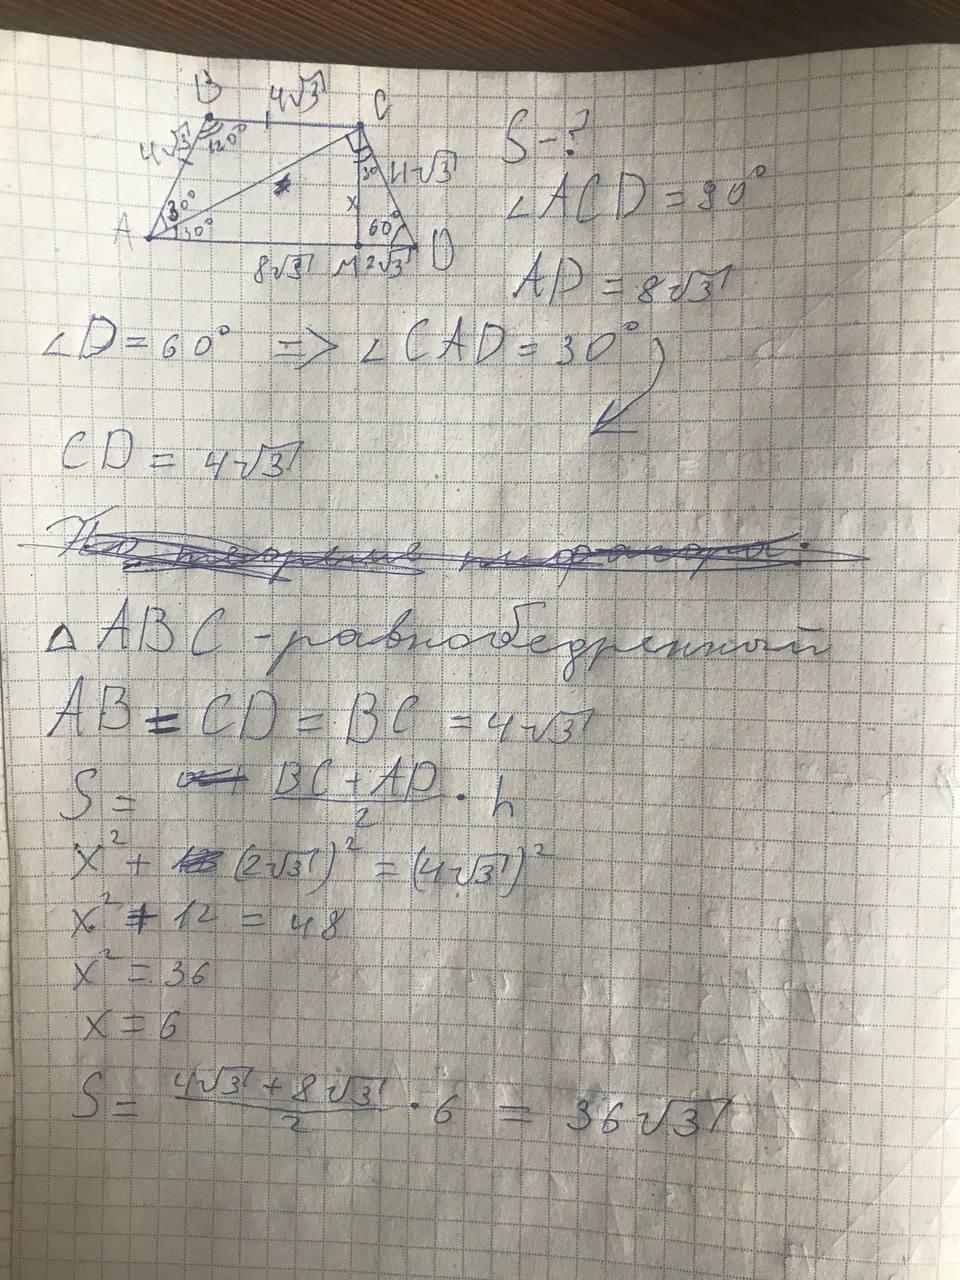 B 4√3 C
4√3 120°
30° 4√3
30° x
A 30° 60° D
8√3 M 2√3
S - ?
∠ACD = 90°
AD = 8√3
∠D = 60° => ∠CAD = 30°
CD = 4√3
По теореме пифагора:
△ABC - равнобедренный
AB = CD = BC = 4√3
S = (BC + AD)/2 · h
x² + (2√3)² = (4√3)²
x² + 12 = 48
x² = 36
x = 6
S = (4√3 + 8√3)/2 · 6 = 36√3